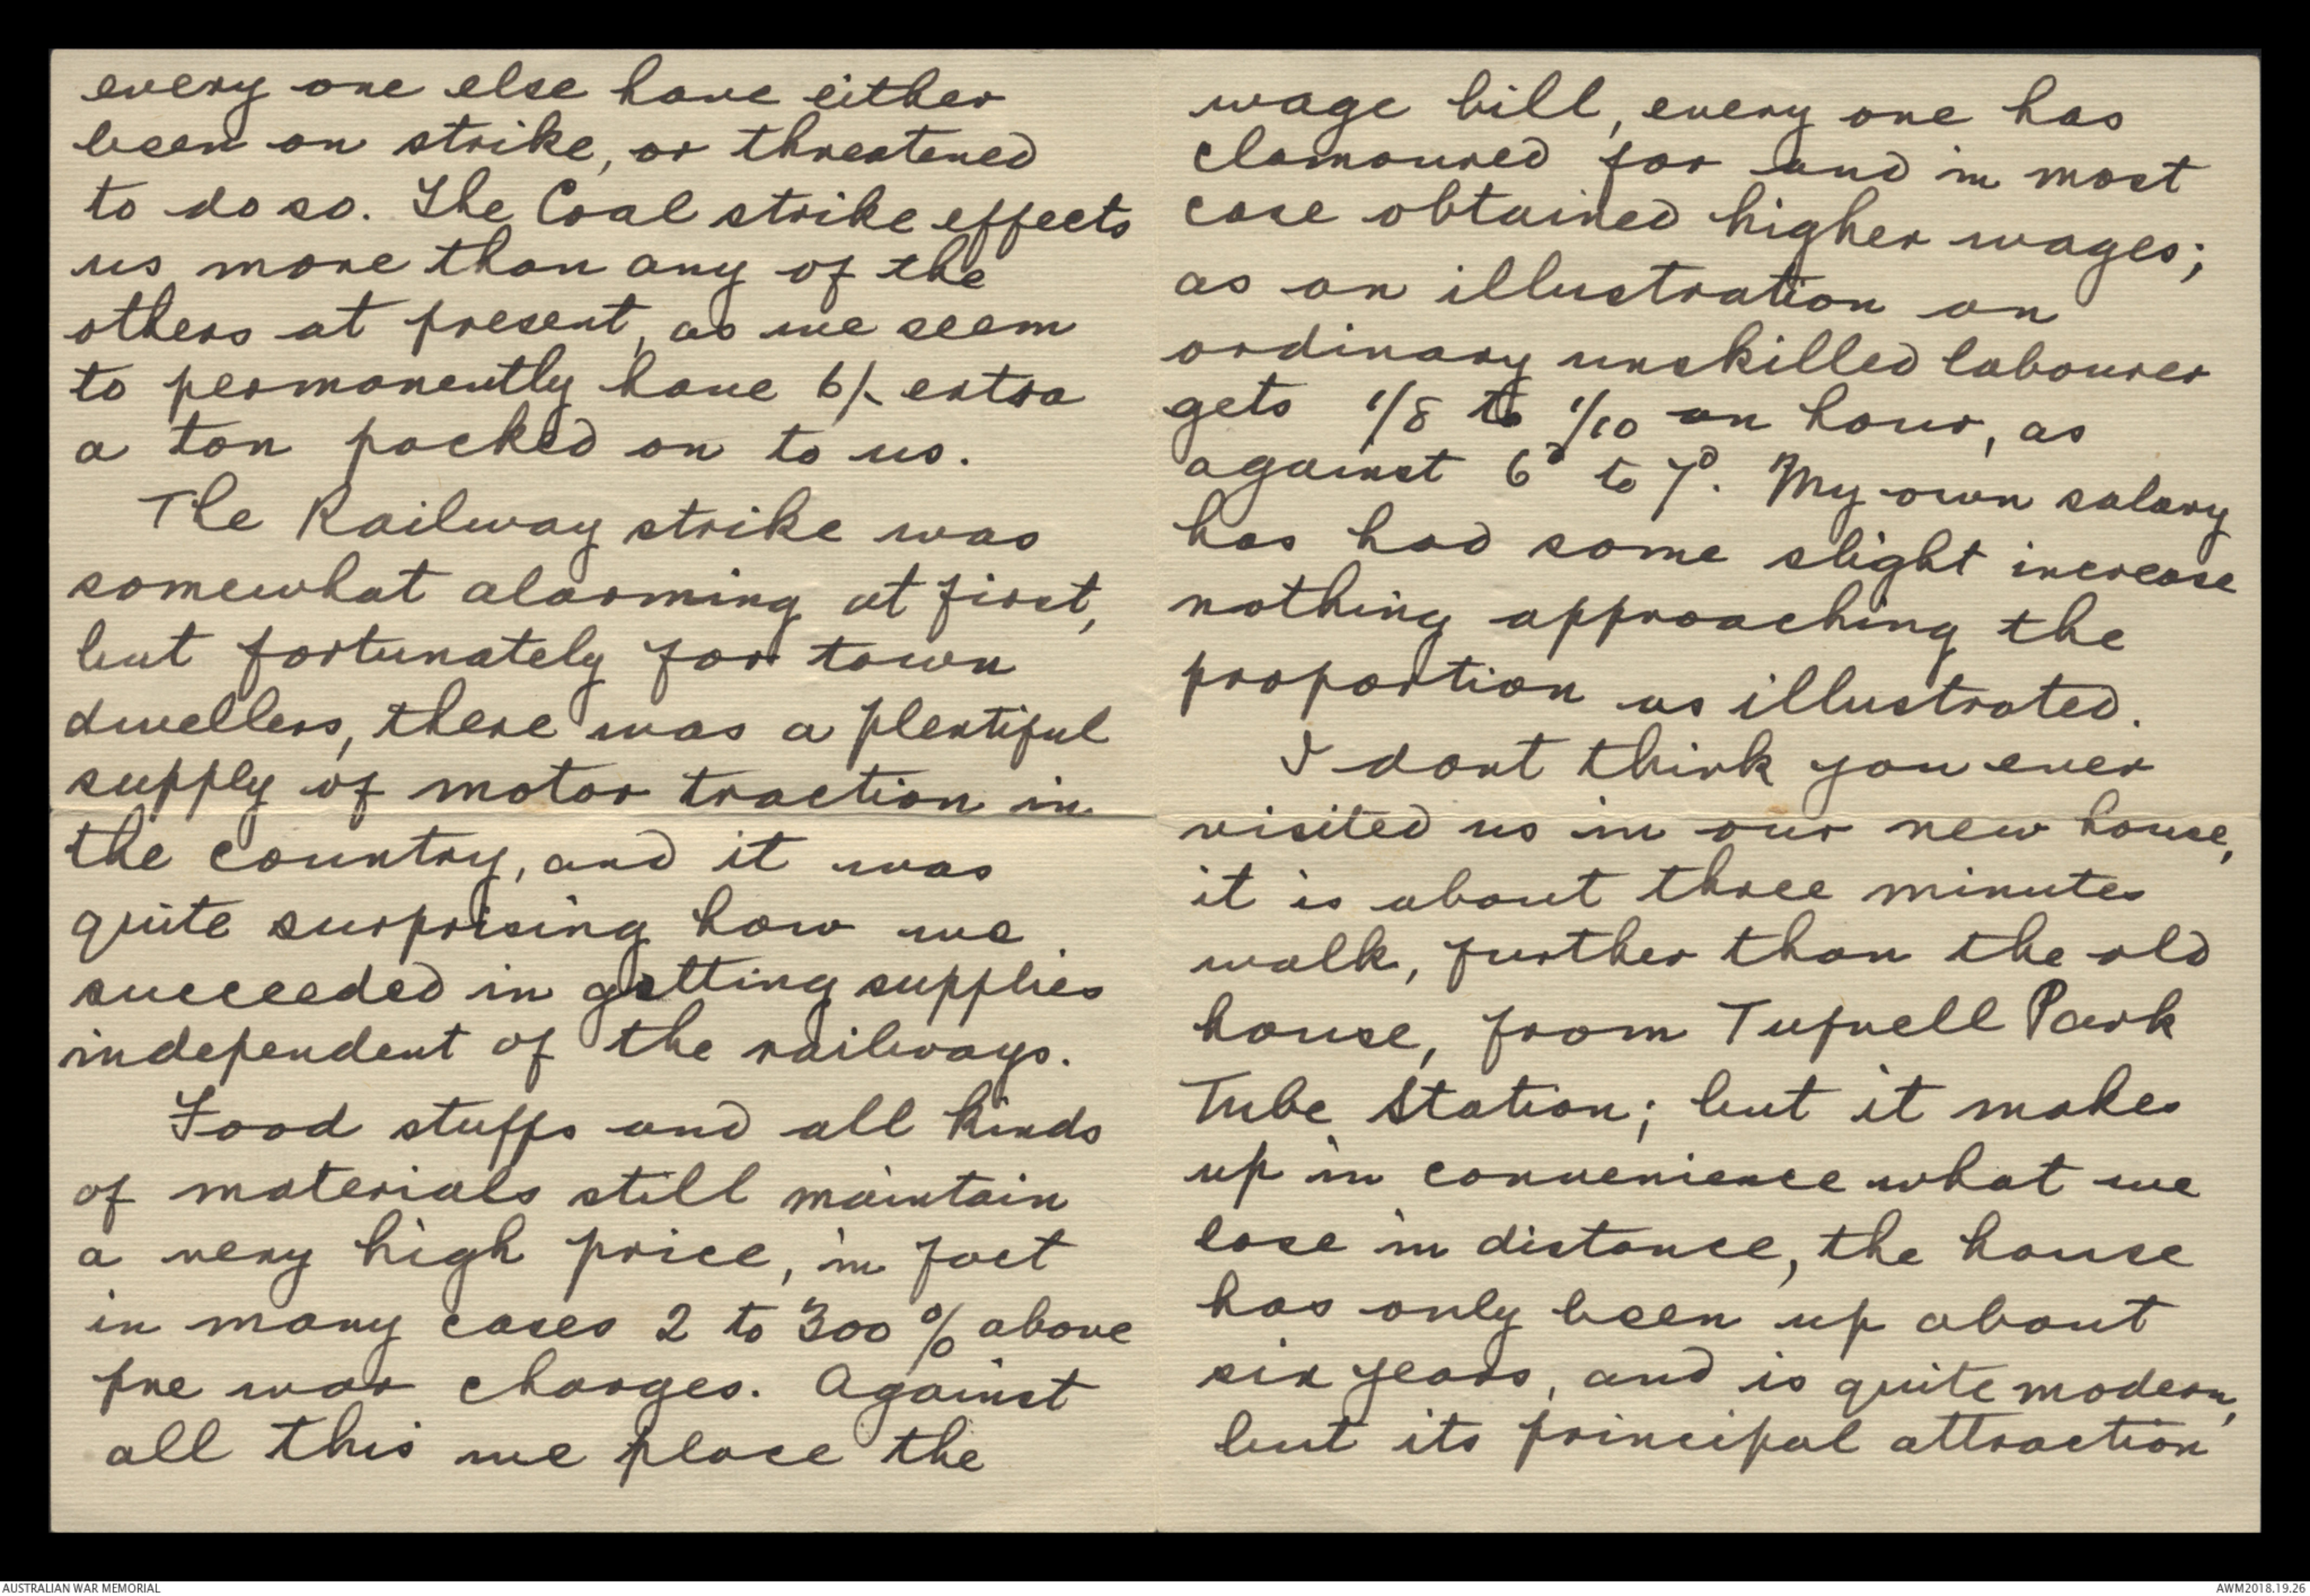 every one else have either
been on strike, or threatened
to do so. The Coal strike effects
us more than any of the
others at present, as we seem
to permanently have 6/- extra
a ton packed on to us.
The Railway strike was
somewhat alarming at first,
but fortunately for town
dwellers, there was a plentiful
supply of motor traction in
the country, and it was
quite surprising how we
succeeded in getting supplies
independent of the railways.
Food stuffs and all kinds
of materials still maintain
a very high price, in fact
in many cases 2 to 300 % above
pre war charges. Against
all this we place the
wage bill, every one has
clamoured for and in most
case obtained higher wages;
as an illustration an
ordinary unskilled labourer
gets 1/8 to 1/10 an hour, as
against 6d to 7d. My own salary
has had some slight increase
nothing approaching the
proportion as illustrated.
I dont think you ever
visited us in our new house,
it is about three minutes
walk, further than the old
house, from Tufnell Park
Tube Station; but it makes
up in convenience what we
lose in distance, the house
has only been up about
six years, and is quite modern,
but its principal attraction
AUSTRALIAN WAR MEMORIAL
AWM2018.19.26